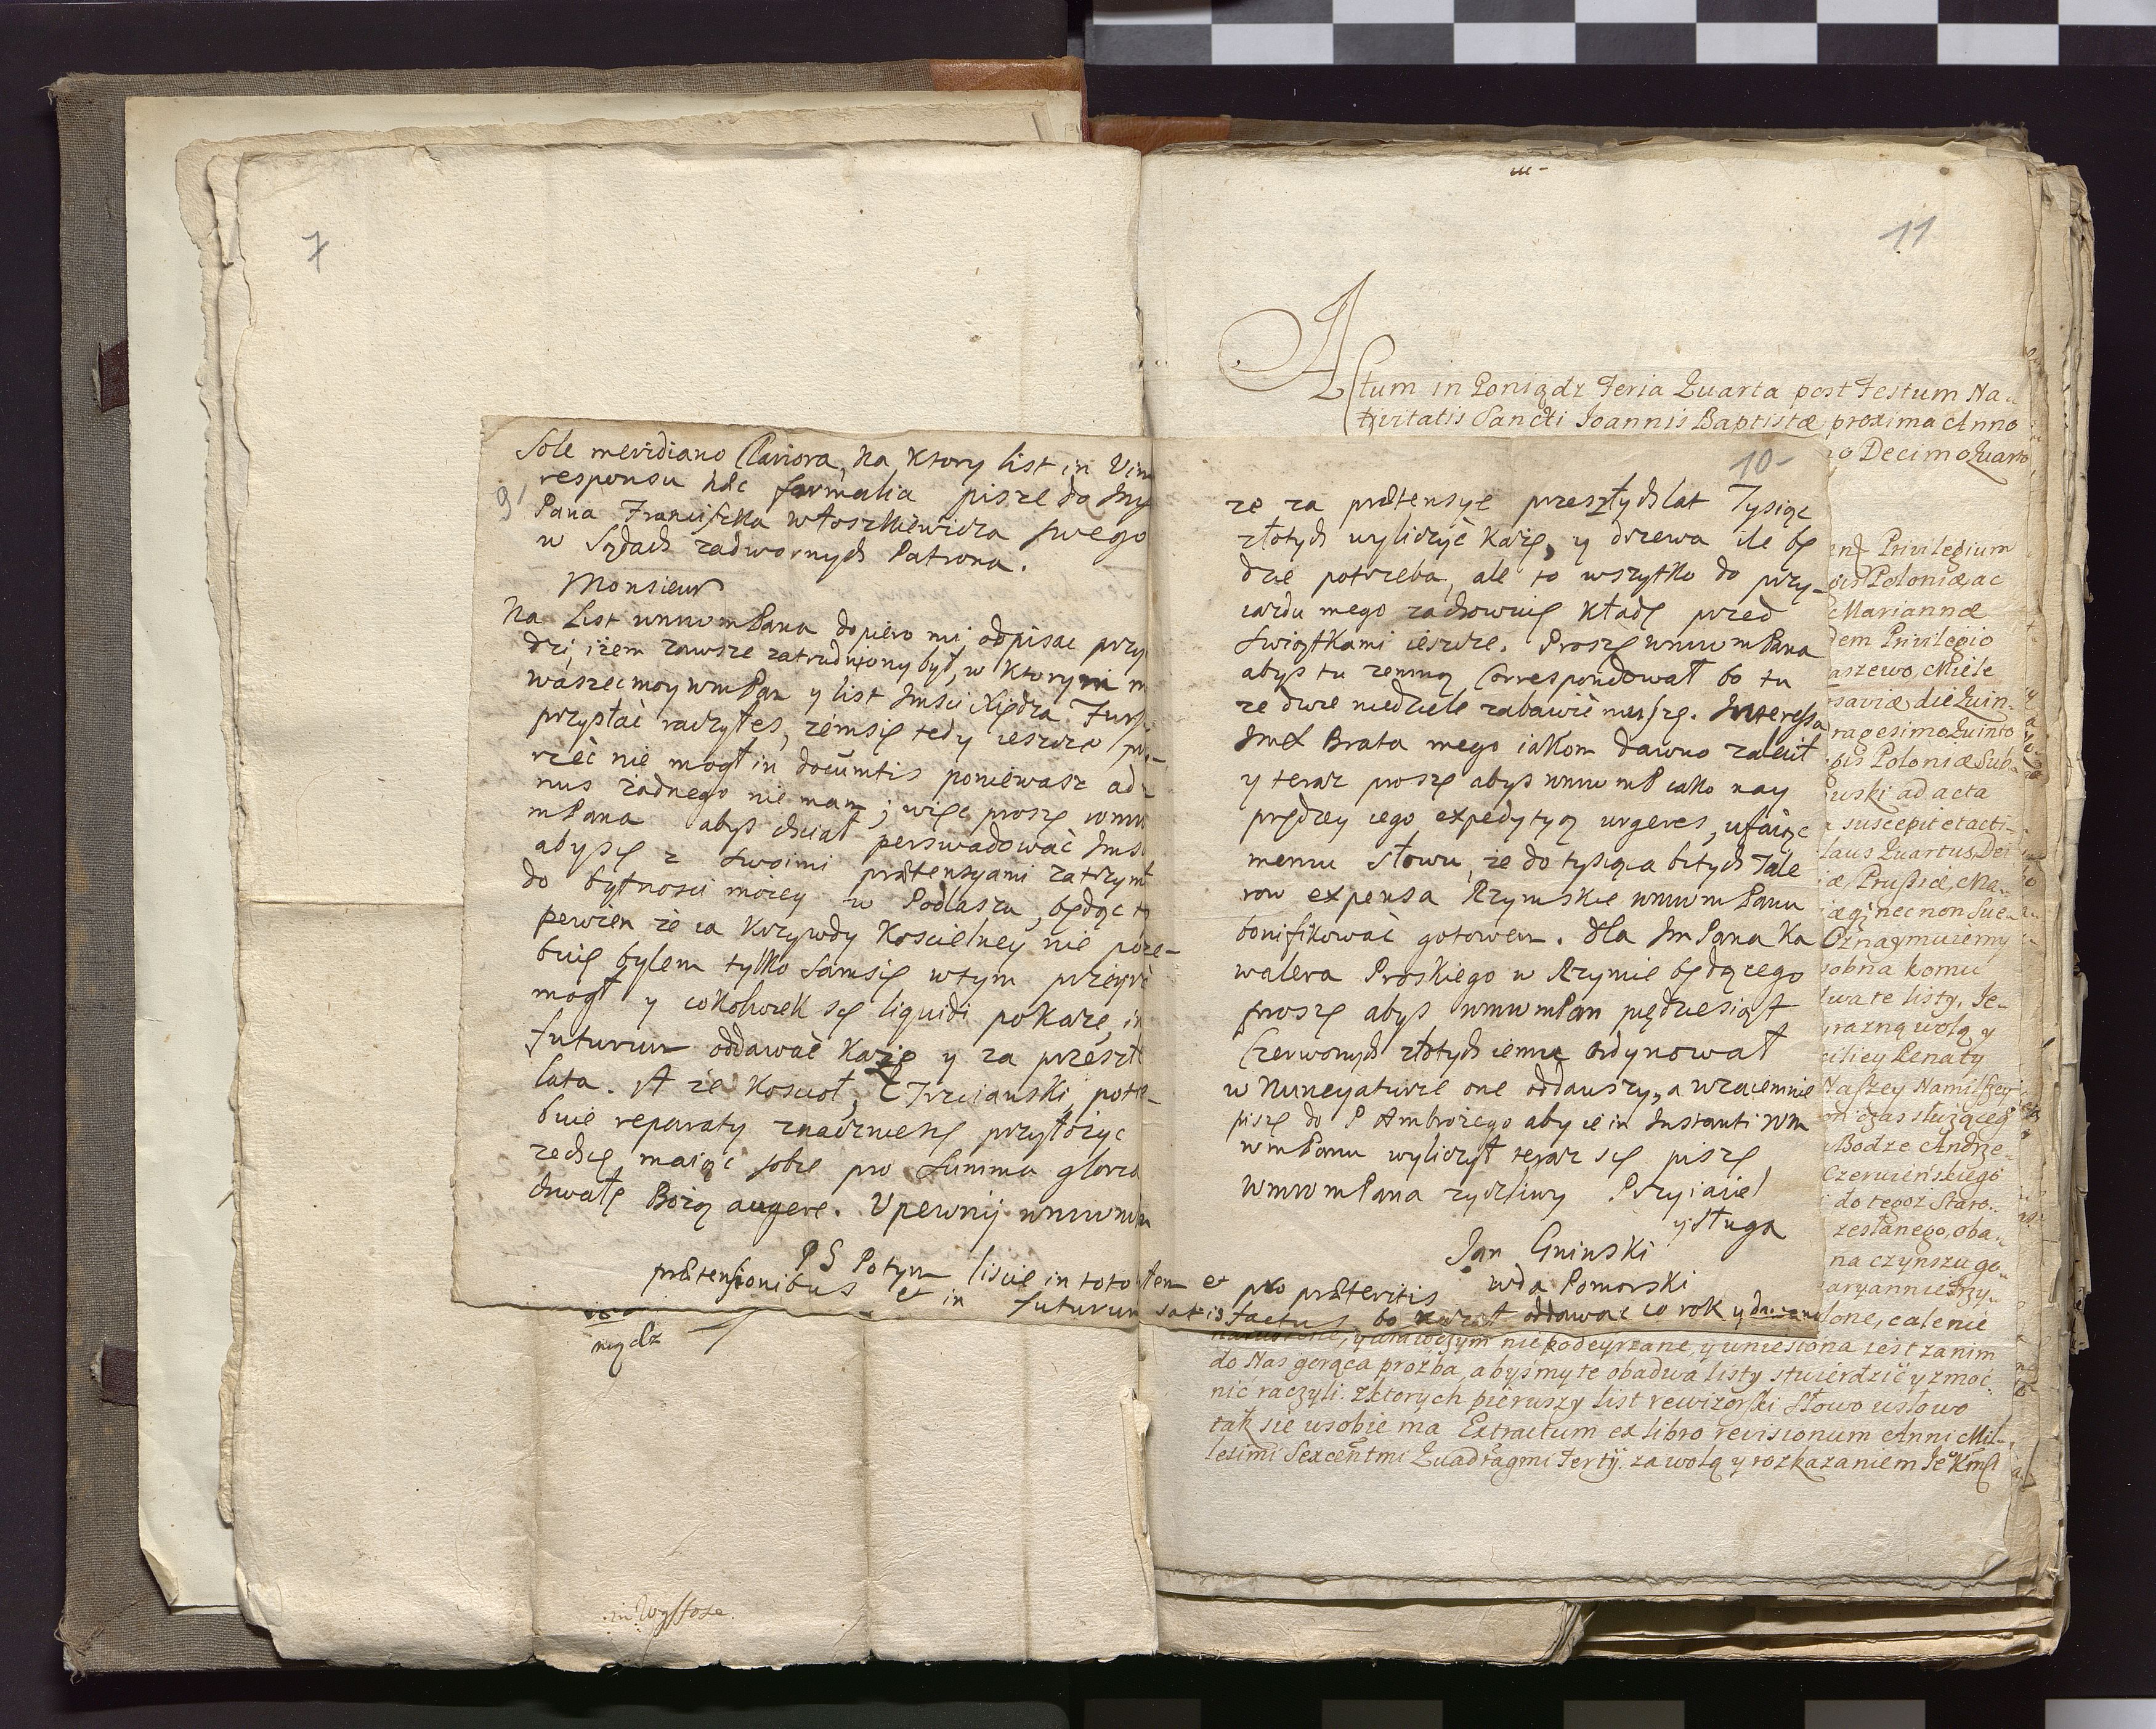 7
9
Sole meridiano Clariora, Na Ktory list in Vim
responsu hæc formalia pisze do Jmsi
Pana Franciszka Włoszkiewicza swego
w Sądach zadwornych Patrona.
Monsieur
Na List wmwmPana dopiero mi odpisac przy
dzi, iżem zawsze zatrudniony był, w Ktorym m
waszec moy wmPan y list Jmsci Xiędza Furs
przysłać raczyłeś, żemsię tedy ieszcze
rzeć nie mogł in documtis ponieważ ad
nus żadnego nie mam; więc proszę wmw
mPana abyś chciał perswadować Jms
aby się z swoimi prætensyami zatrzymł
do bytnosci moiey w Podlaszu, będąc to
pewien że ia Krzywdy Koscielney nie potrze-
buię bylem tylko samsię wtym przeyrz
mogł y cokolwiek się liquidi pokaże, in
futurum oddawać każę y za przeszłe
lata. A że Koscioł, Trzcianski, potrz-
buie reparaty znaczniesze przyłożyc
zechcę maiąc sobie pro summa gloria
chwałę Bożą augere. Upewnij wmwmm
10-
że za prætensye przeszłych lat Tysiąc
złotych wyliczyć każę, y drzewa ile bę
dzie potrzeba, ale to wszytko do przy-
iazdu mego zachowuię kładę przed
Swiątkami ieszcze. Proszę wmwmPana
abyś tu zemną Correspondował bo tu
ze dwie niedziele zabawić muszę. Interessa
Jmci Brata mego iakom dawno zalecił
y teraz proszę abyś wmwmP iako nay
prędzey iego expedytyą urgeres, ufaiąc
memu słowu, że do tysiąca bitych Tale
row expensa Rzymskie wmwmPanu
bonifikować gotowem. Dla JmPana Ka
walera Proskiego w Rzymie będącego
proszę abyś wmwmPan pięćdziesiąt
Czerwonych złotych iemu ordynował
w Nuncyaturze one oddawszy, a wzaiemnie
piszę do P Ambrożego aby ie in Instanti Wm
wmPanu wyliczył teraz się piszę
WmwmPana życzliwy Przyiaciel
y sługa
Jan Gninski
wda Pomorski
PS Potym liscie in toto tem et pro præteritis
prætensionibus et in futurum satisfactus, bo kazał oddawac co rok y
między
in Wyssoze.
11
Actum in Poniądz Feria Quarta post Festum Na-
tivitatis Sancti Joannis Baptistæ proxima Anno
io Decimo Quarto
Privilegium
gis Poloniæ ac
Mariannæ
dem Privilegio
aszewo, Miele
saviæ die Quin-
ragesimo Quinto
gis Poloniæ Sub-
wski ad acta
suscepit et acti-
laus Quartus Dei
iæ, Prussiæ, Ma-
iægi, nec non Sue-
Oznaymuiemy
sobna komu
dwa te listy, Je-
yrazną wolą y
ciliey Renaty
Naszey Namilszey
on czas słuzącego
Bodze Andrze-
Czerwieńskiego
do tegoz Staro-
zesłanego, oba-
na czynszu go-
aryannie Trzy-
one, całe nie
naruszone, y nie podeyrzane, y wniesiona iest zanim
do Nas gorąca prozba, abyśmy te obadwa listy stwierdzić y zmoc
nić raczyli. z ktorych pierwszy list rewizorski słowo w słowo
tak się wsobie ma Extractum ex libro revisionum Anni Mil-
lesimi Sexcentmi Quadragmi Tertÿ. za wolą y rozkazaniem Je Kmści